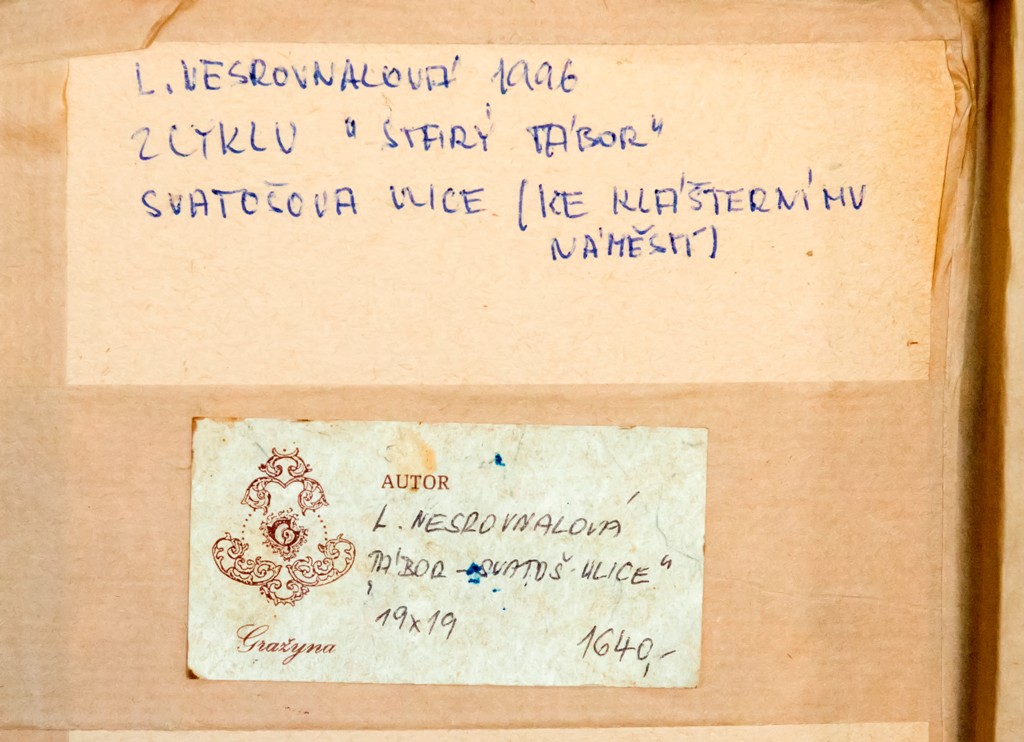 L. NESROVNALOVÁ 1996
Z CYKLU "STARÝ TÁBOR"
SVATOŠOVA ULICE (KE KLÁŠTERNÍMU
NÁMĚSTÍ)
AUTOR
L. NESROVNALOVÁ
"TÁBOR - SVATOŠ. ULICE"
19x19
1640,-
Gražyna